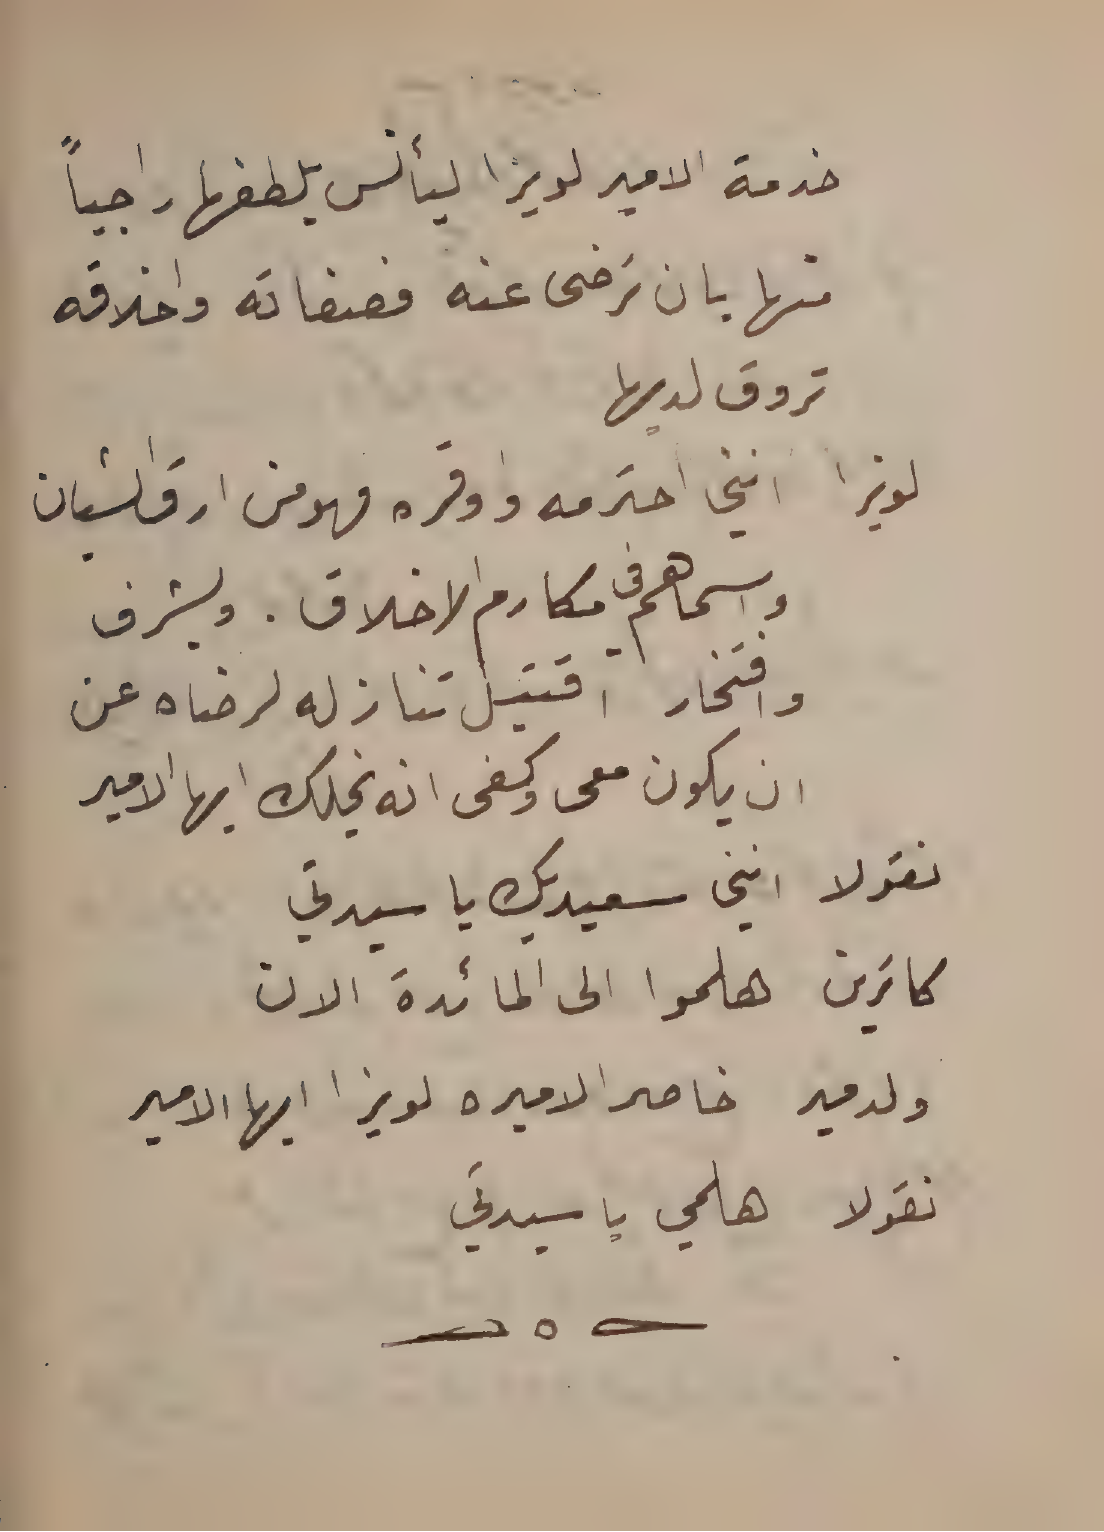 خدمة الامير لويزا ليأنس بلطفها راجياً
منها بان ترضى عنه فصفاته واخلاقه
تروق لديها
لويزا انني احترمه واوقره فهو من ارق الشبان
واسماهم في مكارم الاخلاق . وبشرف
وافتخار اقتبل تنازله لرضاه عن
ان يكون معي وكفى انه نجلك ايها الامير
نقولا انني سعيد بك يا سيدتي
كاترين هلموا الى المائدة الان
ولدمير خاصر الاميره لويزا ايها الامير
نقولا هلمي يا سيدتي